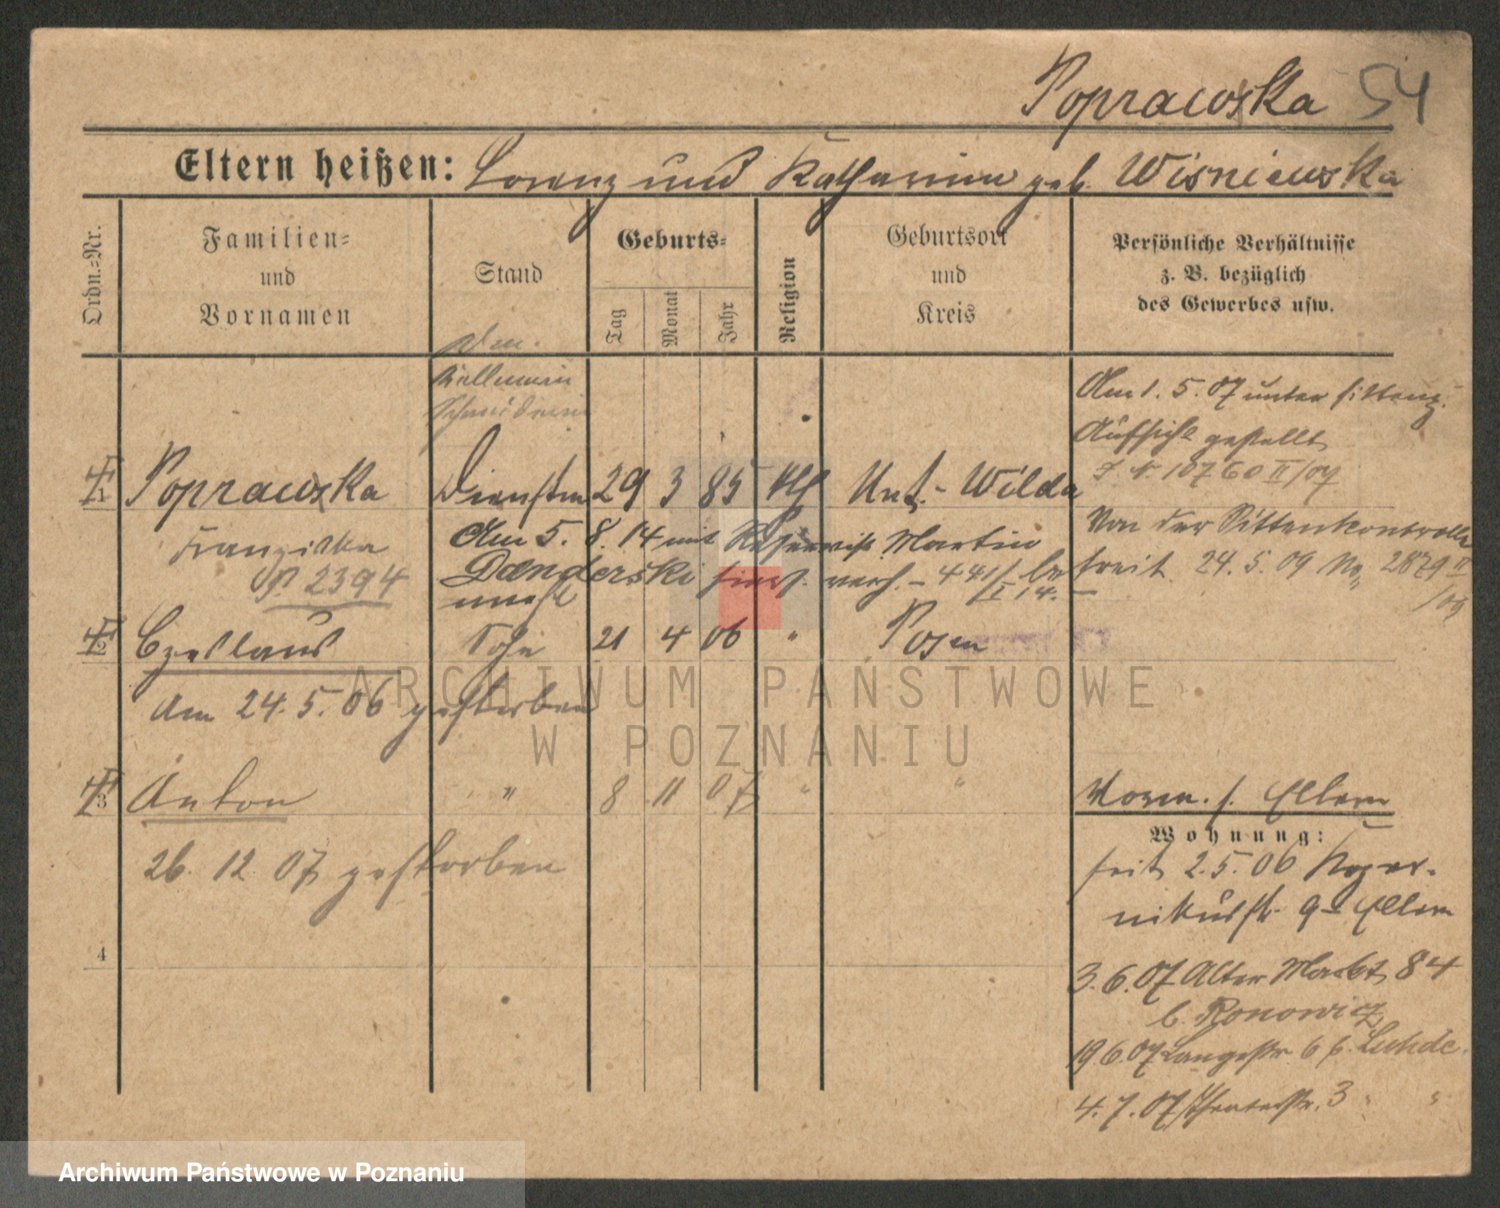 Poprawska 54
Eltern heißen: Lorenz und Katharina geb. Wisniewska
Ordn.-Nr.
Familien-
und
Vornamen
Stand
Geburts-
Tag
Monat
Jahr
Religion
Geburtsort
und
Kreis
Persönliche Verhältnisse
z. B. bezüglich
des Gewerbes usw.
Kellnerin
Schneiderin
Am 1. 5. 07 unter sittenp.
Aufsicht gestellt
J. N. 10760 II/07
1 Poprawska Dienstm 29 3 85 kth Unt.- Wilda
Franziska
P 2394
Am 5. 8. 14 mit Reservist Martin
Danderski hier verh. - 441/I 14. -
unehl
Von der Sittenkontrolle
befreit 24. 5. 09 No 2879 II/09
2 Czeslaus Sohn 21 4 06 " Posen
Am 24. 5. 06 gestorben
3 Anton " 8 11 07 " "
26. 12. 07 gestorben
Vorm. s. Eltern
Wohnung:
seit 2. 5. 06 Koper-
nikusstr. 9 Eltern
3. 6. 07 Alter Markt 84
b. Ronowicz
19 6. 07 Langestr. 6 b. Luhde.
4. 7. 07 Theaterstr. 3 " "
4
ARCHIWUM PAŃSTWOWE
W POZNANIU
Archiwum Państwowe w Poznaniu